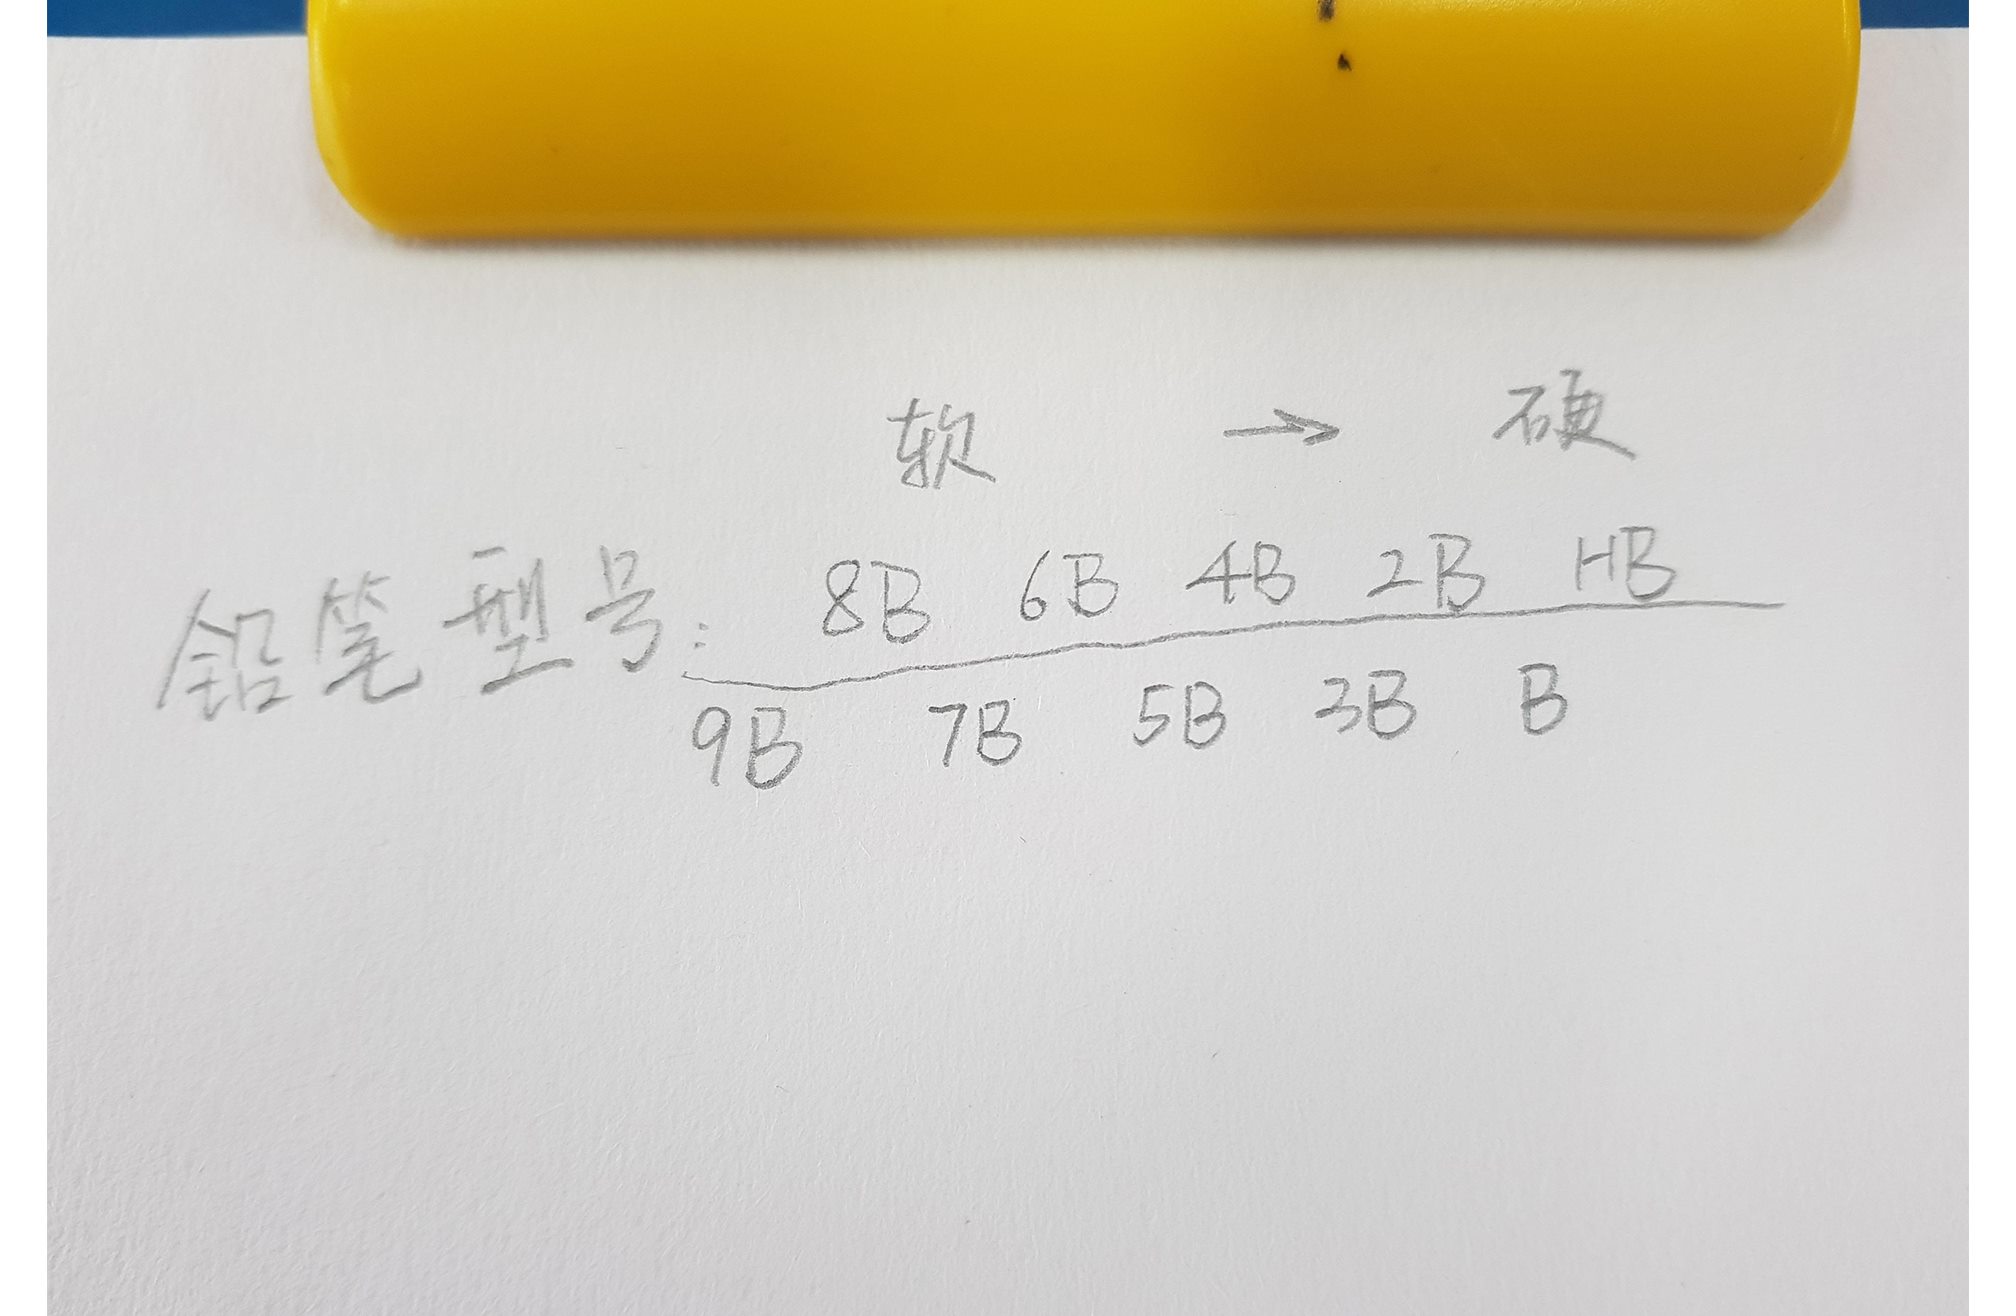 软 → 硬
铅笔型号: 8B 6B 4B 2B HB
9B 7B 5B 3B B